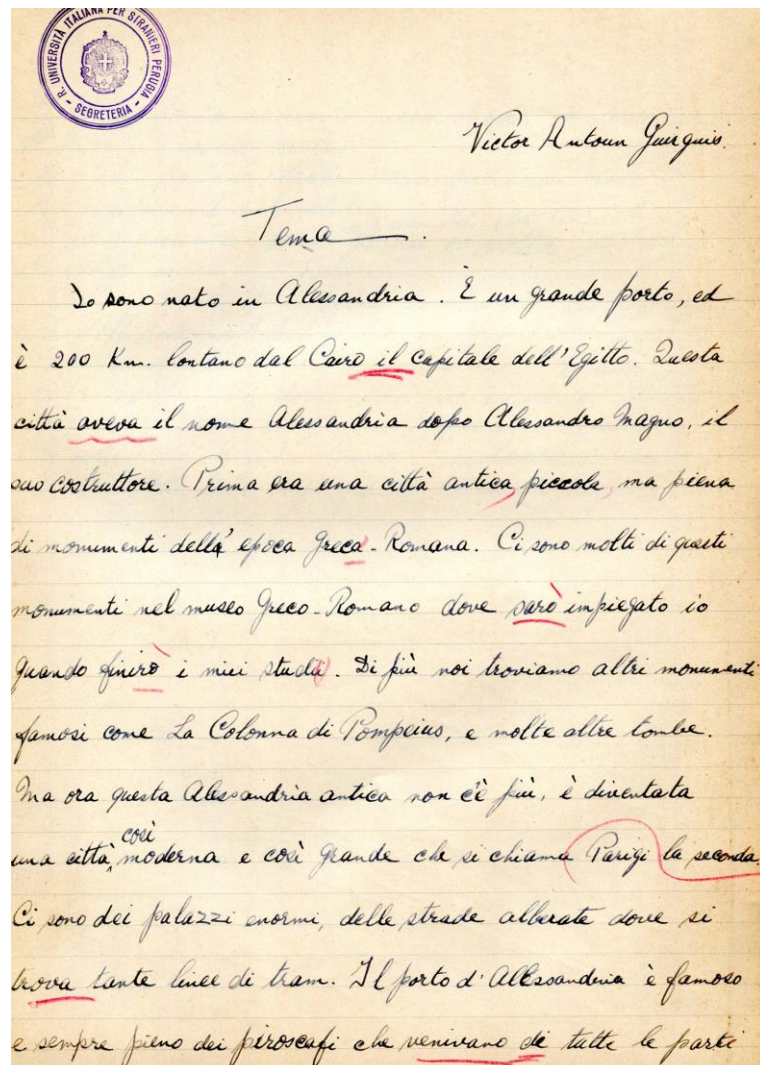 R. UNIVERSITÀ ITALIANA PER STRANIERI PERUGIA - SEGRETERIA -
Victor Antoun Guirguis.
Tema.
Io sono nato in Alessandria. È un grande porto, ed
è 200 Km. lontano dal Cairo il capitale dell'Egitto. Questa
città aveva il nome Alessandria dopo Alessandro Magno, il
suo costruttore. Prima era una città antica, piccola, ma piena
di monumenti dell'epoca Greca-Romana. Ci sono molti di questi
monumenti nel museo Greco-Romano dove sarò impiegato io
quando finirò i miei studi. Di più noi troviamo altri monumenti
famosi come La Colonna di Pompeius, e molte altre tombe.
Ma ora questa Alessandria antica non c'è più, è diventata
una città così moderna e così grande che si chiama Parigi la seconda.
Ci sono dei palazzi enormi, delle strade alberate dove si
trova tante linee di tram. Il porto d'Alessandria è famoso
e sempre pieno dei piroscafi che venivano di tutte le parti